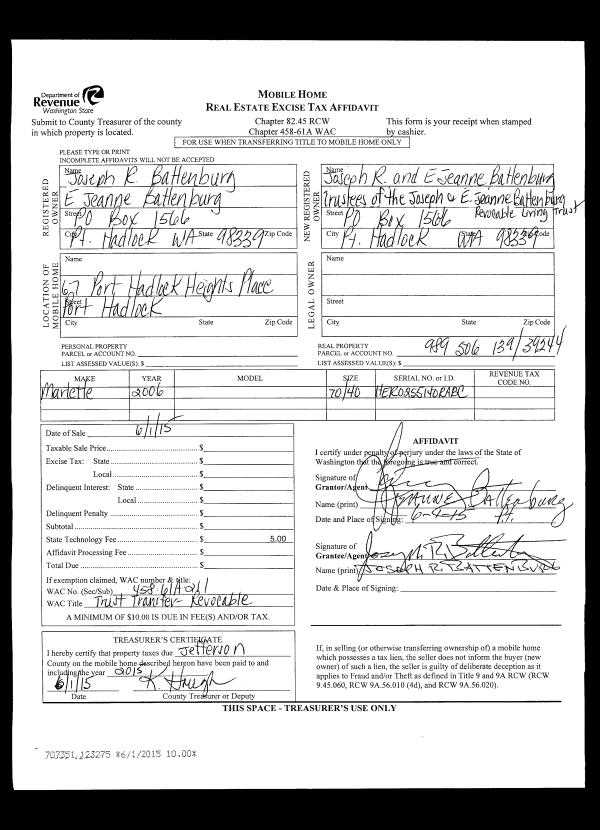 Department of
Revenue
Washington State
MOBILE HOME
REAL ESTATE EXCISE TAX AFFIDAVIT
Submit to County Treasurer of the county
in which property is located.
Chapter 82.45 RCW
Chapter 458-61A WAC
This form is your receipt when stamped
by cashier.
FOR USE WHEN TRANSFERRING TITLE TO MOBILE HOME ONLY
PLEASE TYPE OR PRINT
INCOMPLETE AFFIDAVITS WILL NOT BE ACCEPTED
REGISTERED OWNER
Name Joseph R. Battenburg
E Jeanne Battenburg
Street PO Box 1566
City Pt. Hadlock WA State 98339 Zip Code
NEW REGISTERED OWNER
Name Joseph R. and E Jeanne Battenburg
Trustees of the Joseph & E. Jeanne Battenburg
Revocable Living Trust
Street PO Box 1566
City Pt. Hadlock State WA 98339 Zip Code
LOCATION OF MOBILE HOME
Name
67 Port Hadlock Heights Place
Street Port Hadlock
City State Zip Code
LEGAL OWNER
Name
Street
City State Zip Code
PERSONAL PROPERTY
PARCEL or ACCOUNT NO.
LIST ASSESSED VALUE(S): $
REAL PROPERTY
PARCEL or ACCOUNT NO. 989 506 139/39244
LIST ASSESSED VALUE(S): $
MAKE YEAR MODEL SIZE SERIAL NO. or I.D. REVENUE TAX CODE NO.
Marlette 2006 70/40 HERO25514ORABC
Date of Sale 6/1/15
Taxable Sale Price $
Excise Tax: State $
Local $
Delinquent Interest: State $
Local $
Delinquent Penalty $
Subtotal $
State Technology Fee $ 5.00
Affidavit Processing Fee $
Total Due $
If exemption claimed, WAC number & title:
WAC No. (Sec/Sub) 458-61A-211
WAC Title Trust Transfer- Revocable
A MINIMUM OF $10.00 IS DUE IN FEE(S) AND/OR TAX.
AFFIDAVIT
I certify under penalty of perjury under the laws of the State of
Washington that the foregoing is true and correct.
Signature of
Grantor/Agent
Name (print) JEANNE Battenburg
Date and Place of Signing: 6-4-15 P.H.
Signature of
Grantee/Agent Joseph R. Battenburg
Name (print) JOSEPH R. BATTENBURG
Date & Place of Signing:
TREASURER'S CERTIFICATE
I hereby certify that property taxes due Jefferson
County on the mobile home described hereon have been paid to and
including the year 2015
6/1/15 K. Hough
Date County Treasurer or Deputy
If, in selling (or otherwise transferring ownership of) a mobile home
which possesses a tax lien, the seller does not inform the buyer (new
owner) of such a lien, the seller is guilty of deliberate deception as it
applies to Fraud and/or Theft as defined in Title 9 and 9A RCW (RCW
9.45.060, RCW 9A.56.010 (4d), and RCW 9A.56.020).
THIS SPACE - TREASURER'S USE ONLY
707351,123275 *6/1/2015 10.00*